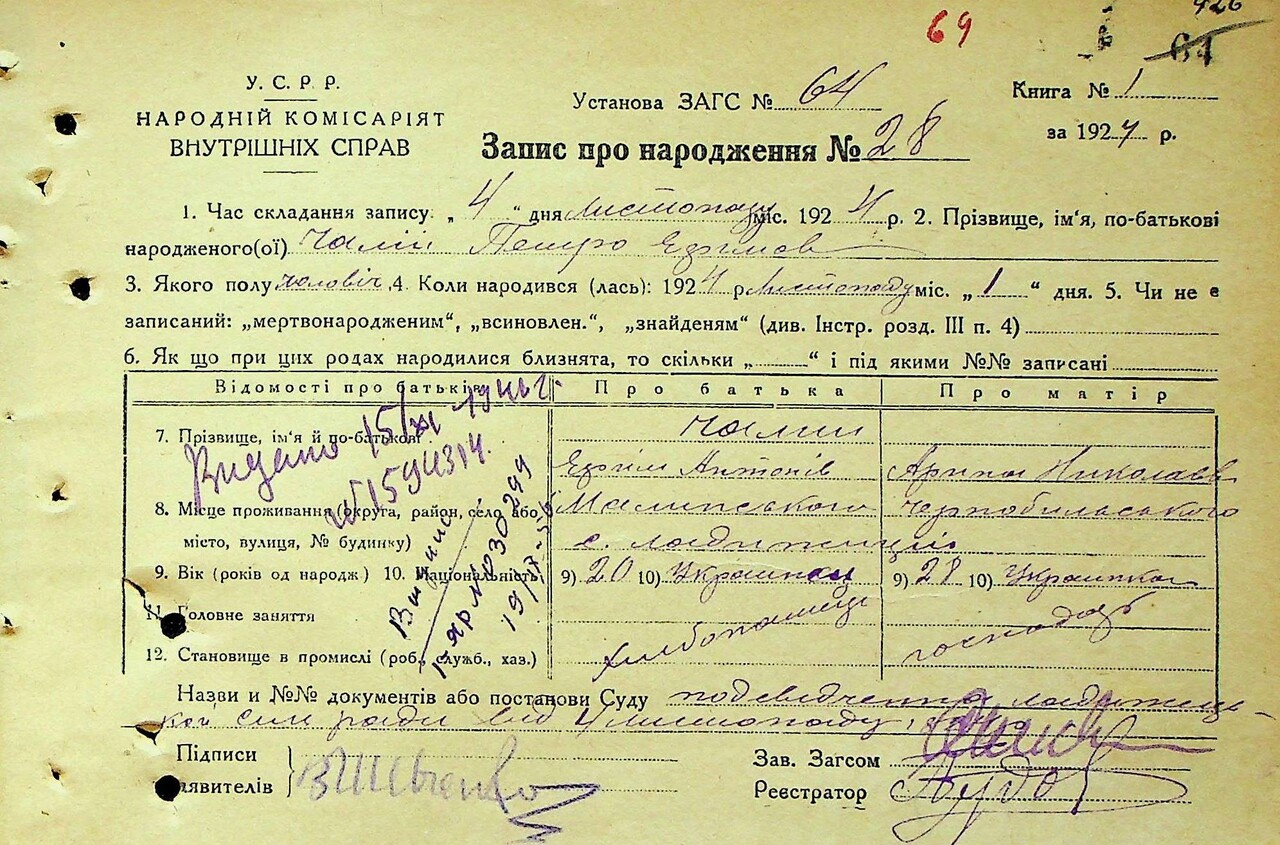 69
426
64
У. С. Р. Р.
НАРОДНІЙ КОМІСАРІЯТ
ВНУТРІШНІХ СПРАВ
Установа ЗАГС № 64
Книга № 1
за 1924 р.
Запис про народження № 28
1. Час складання запису. „ 4 “ дня листопаду міс. 1924 р. 2. Прізвище, ім'я, по-батькові
народженого(ої) Чалий Петро Ефимов
3. Якого полу чоловіч. 4. Коли народився (лась): 1924 р. листопаду міс. „ 1 “ дня. 5. Чи не є
записаний: „мертвонародженим“, „всиновлен.“, „знайденям“ (див. Інстр. розд. III п. 4)
6. Як що при цих родах народилися близнята, то скільки „ “ і під якими №№ записані
Відомості про батьків Про батька Про матір
7. Прізвище, ім'я й по-батькові Чалий
Ефим Антонів Арина Николаев
8. Місце проживання (округа, район, село або
місто, вулиця, № будинку)
Малинського Чернобильського
с. Ладижицы
9. Вік (років од народж) 10. Національність 9) 20 10) Украинец 9) 28 10) Украинка
11. Головне заняття
12. Становище в промислі (роб., служб., хаз.)
хлібопашець господар
Видано 15/XI 1946 г.
1594314.
Виписа
ЯР № 030299
Назви и №№ документів або постанови Суду посвідчення ладижиць-
кой сил ради від 4 листопаду
Підписи
заявителів
ВШевченко
Зав. Загсом
Реєстратор